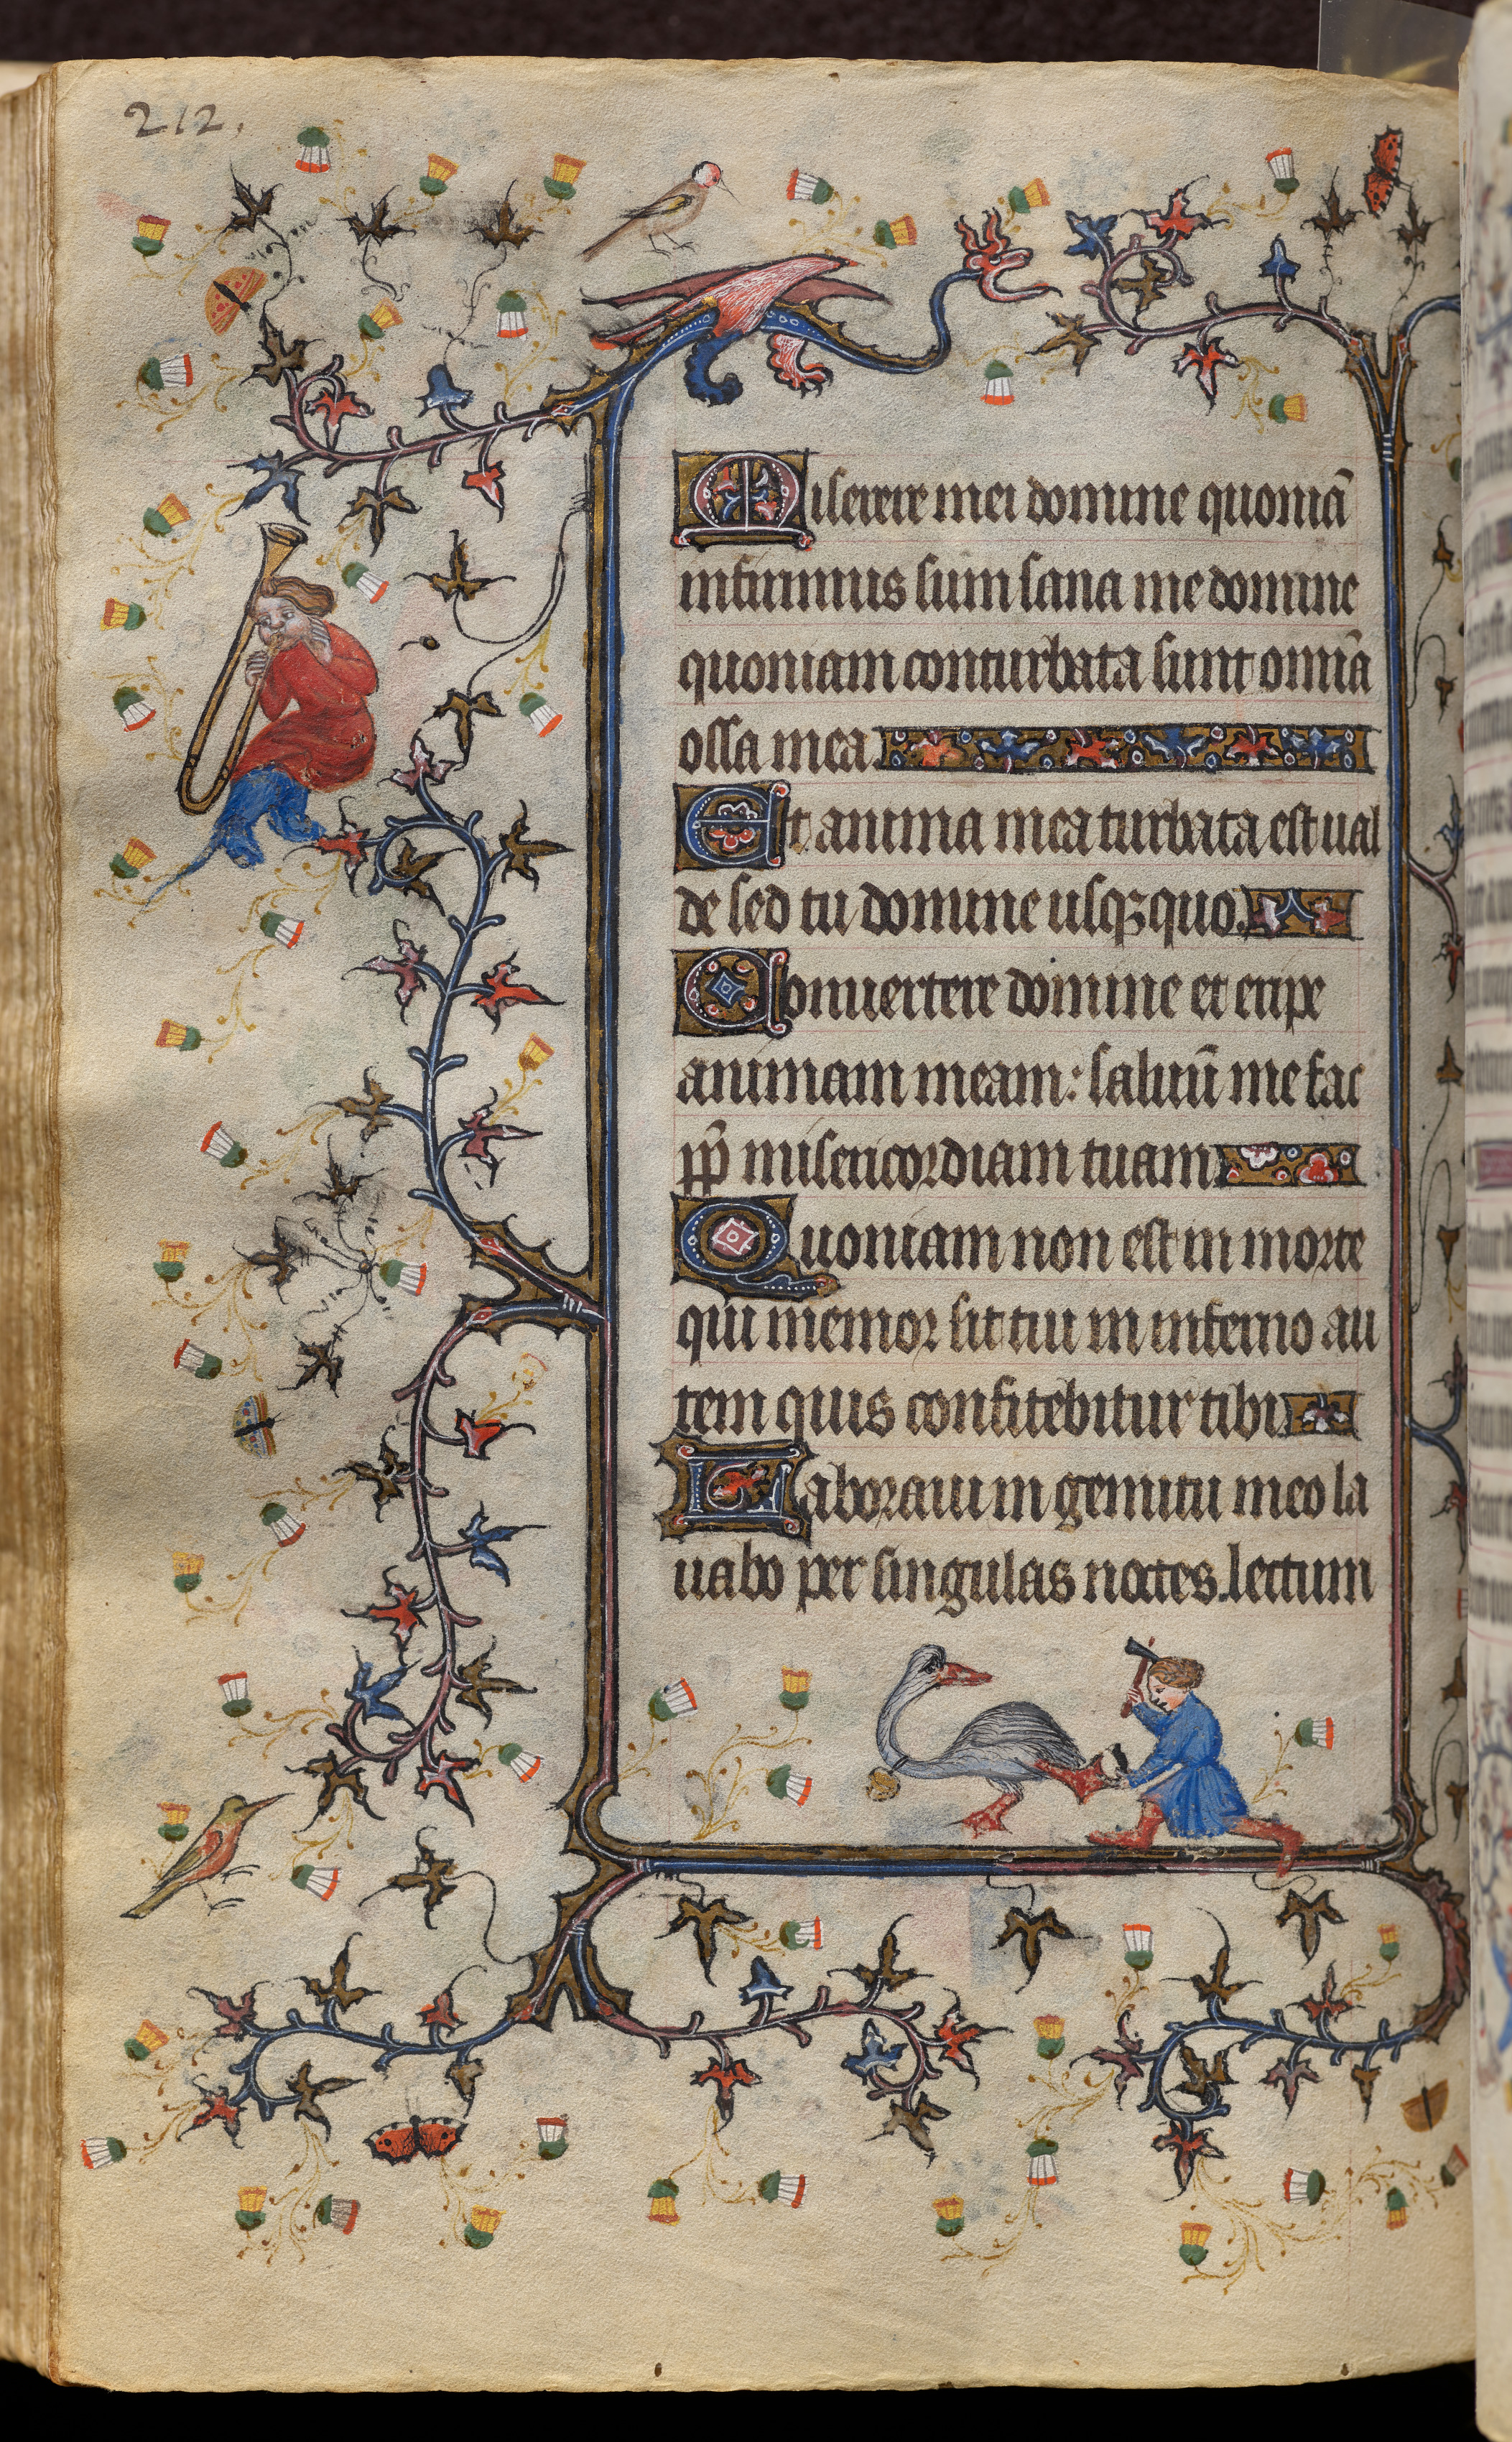 212.
Miserere mei domine quoniā
infirmus sum sana me domine
quoniam conturbata sunt omīa
ossa mea
Et anima mea turbata est ual
de sed tu domine usqꝫ quo.
Conuertere domine et eripe
animam meam: saluū me fac
ꝓp̄ misericordiam tuam
Quoniam non est in morte
qui memor sit tui in inferno au
tem quis confitebitur tibi
Laboraui in gemitu meo la
uabo per singulas noctes. lectum